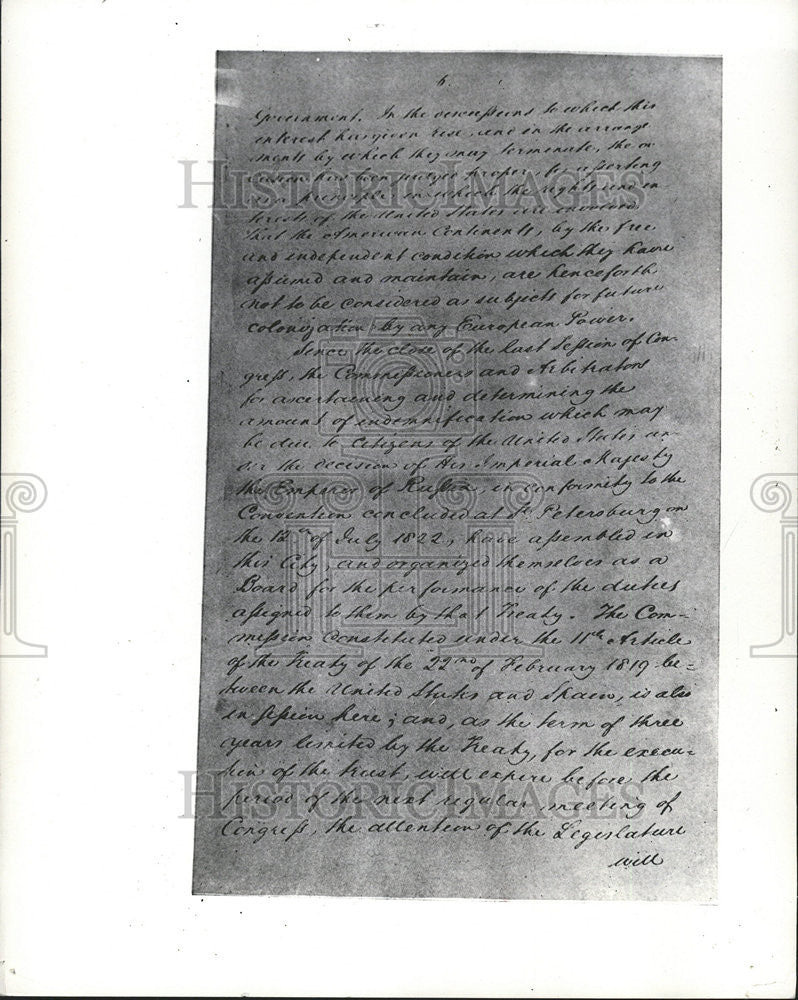 6.
Government. In the discussions to which this
interest has given rise, and in the arrange
ments by which they may terminate, the oc
casion has been judged proper, for asserting
as a principle in which the rights and in
terests of the United States are involved,
that the American Continents, by the free
and independent condition which they have
assumed and maintain, are henceforth
not to be considered as subjects for future
colonization by any European Power.
Since the close of the last Session of Con-
gress, the Commissioners and Arbitrators
for ascertaining and determining the
amount of indemnification which may
be due to Citizens of the United States un-
der the decision of His Imperial Majesty
the Emperor of Russia, in conformity to the
Convention concluded at St. Petersburg on
the 12th of July 1822, have assembled in
this City, and organized themselves as a
Board for the performance of the duties
assigned to them by that Treaty. The Com-
mission constituted under the 11th Article
of the Treaty of the 22nd of February 1819 be-
tween the United States and Spain, is also
in session here; and, as the term of three
years limited by the Treaty, for the execu-
tion of the trust, will expire before the
period of the next regular meeting of
Congress, the attention of the Legislature
will
HISTORIC IMAGES
HISTORIC IMAGES